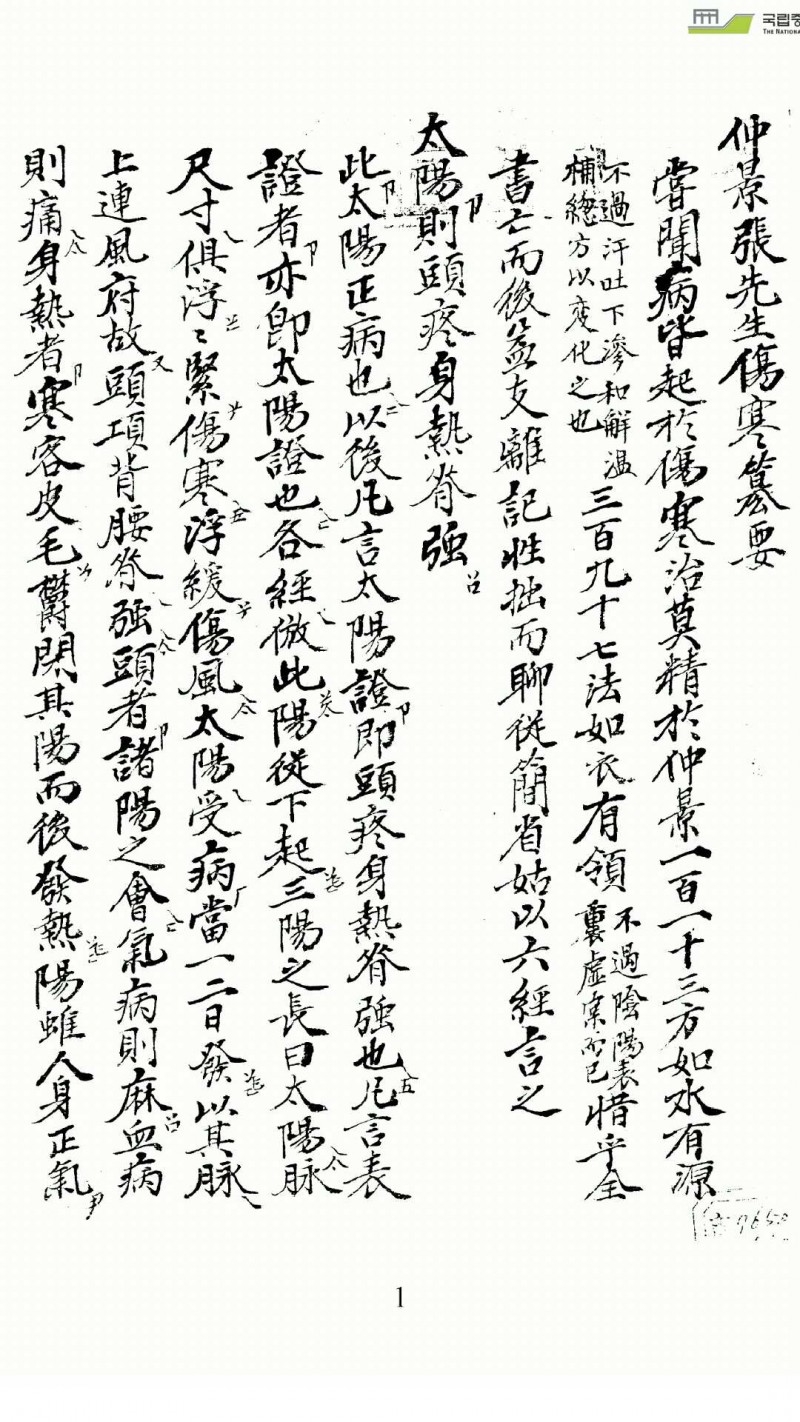 국립중
THE NATIONA
仲景張先生傷寒纂要
嘗聞病皆起於傷寒治莫精於仲景一百一十三方如水有源
不過汗吐下滲和解溫
補總方以变化之也
三百九十七法如衣有領
不過陰陽表
裏虛実而已
惜乎全
書亡而後益支離記性拙而聊従簡省姑以六經言之
太陽則頭疼身熱脊強
此太陽正病也以後凡言太陽證即頭疼身熱脊強也凡言表
證者亦卽太陽證也各經倣此陽従下起三陽之長曰太陽脉
尺寸俱浮〻緊傷寒浮緩傷風太陽受病當一二日發以其脉
上連風府故頭項背腰脊強頭者諸陽之會氣病則麻血病
則痛身熱者寒客皮毛鬱閉其陽而後發熱陽雖人身正氣
7650
1